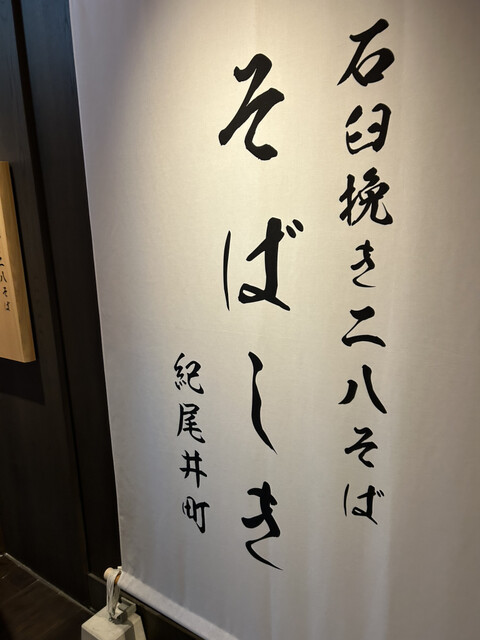 石臼挽き二八そば
そばしき
紀尾井町
二八そば